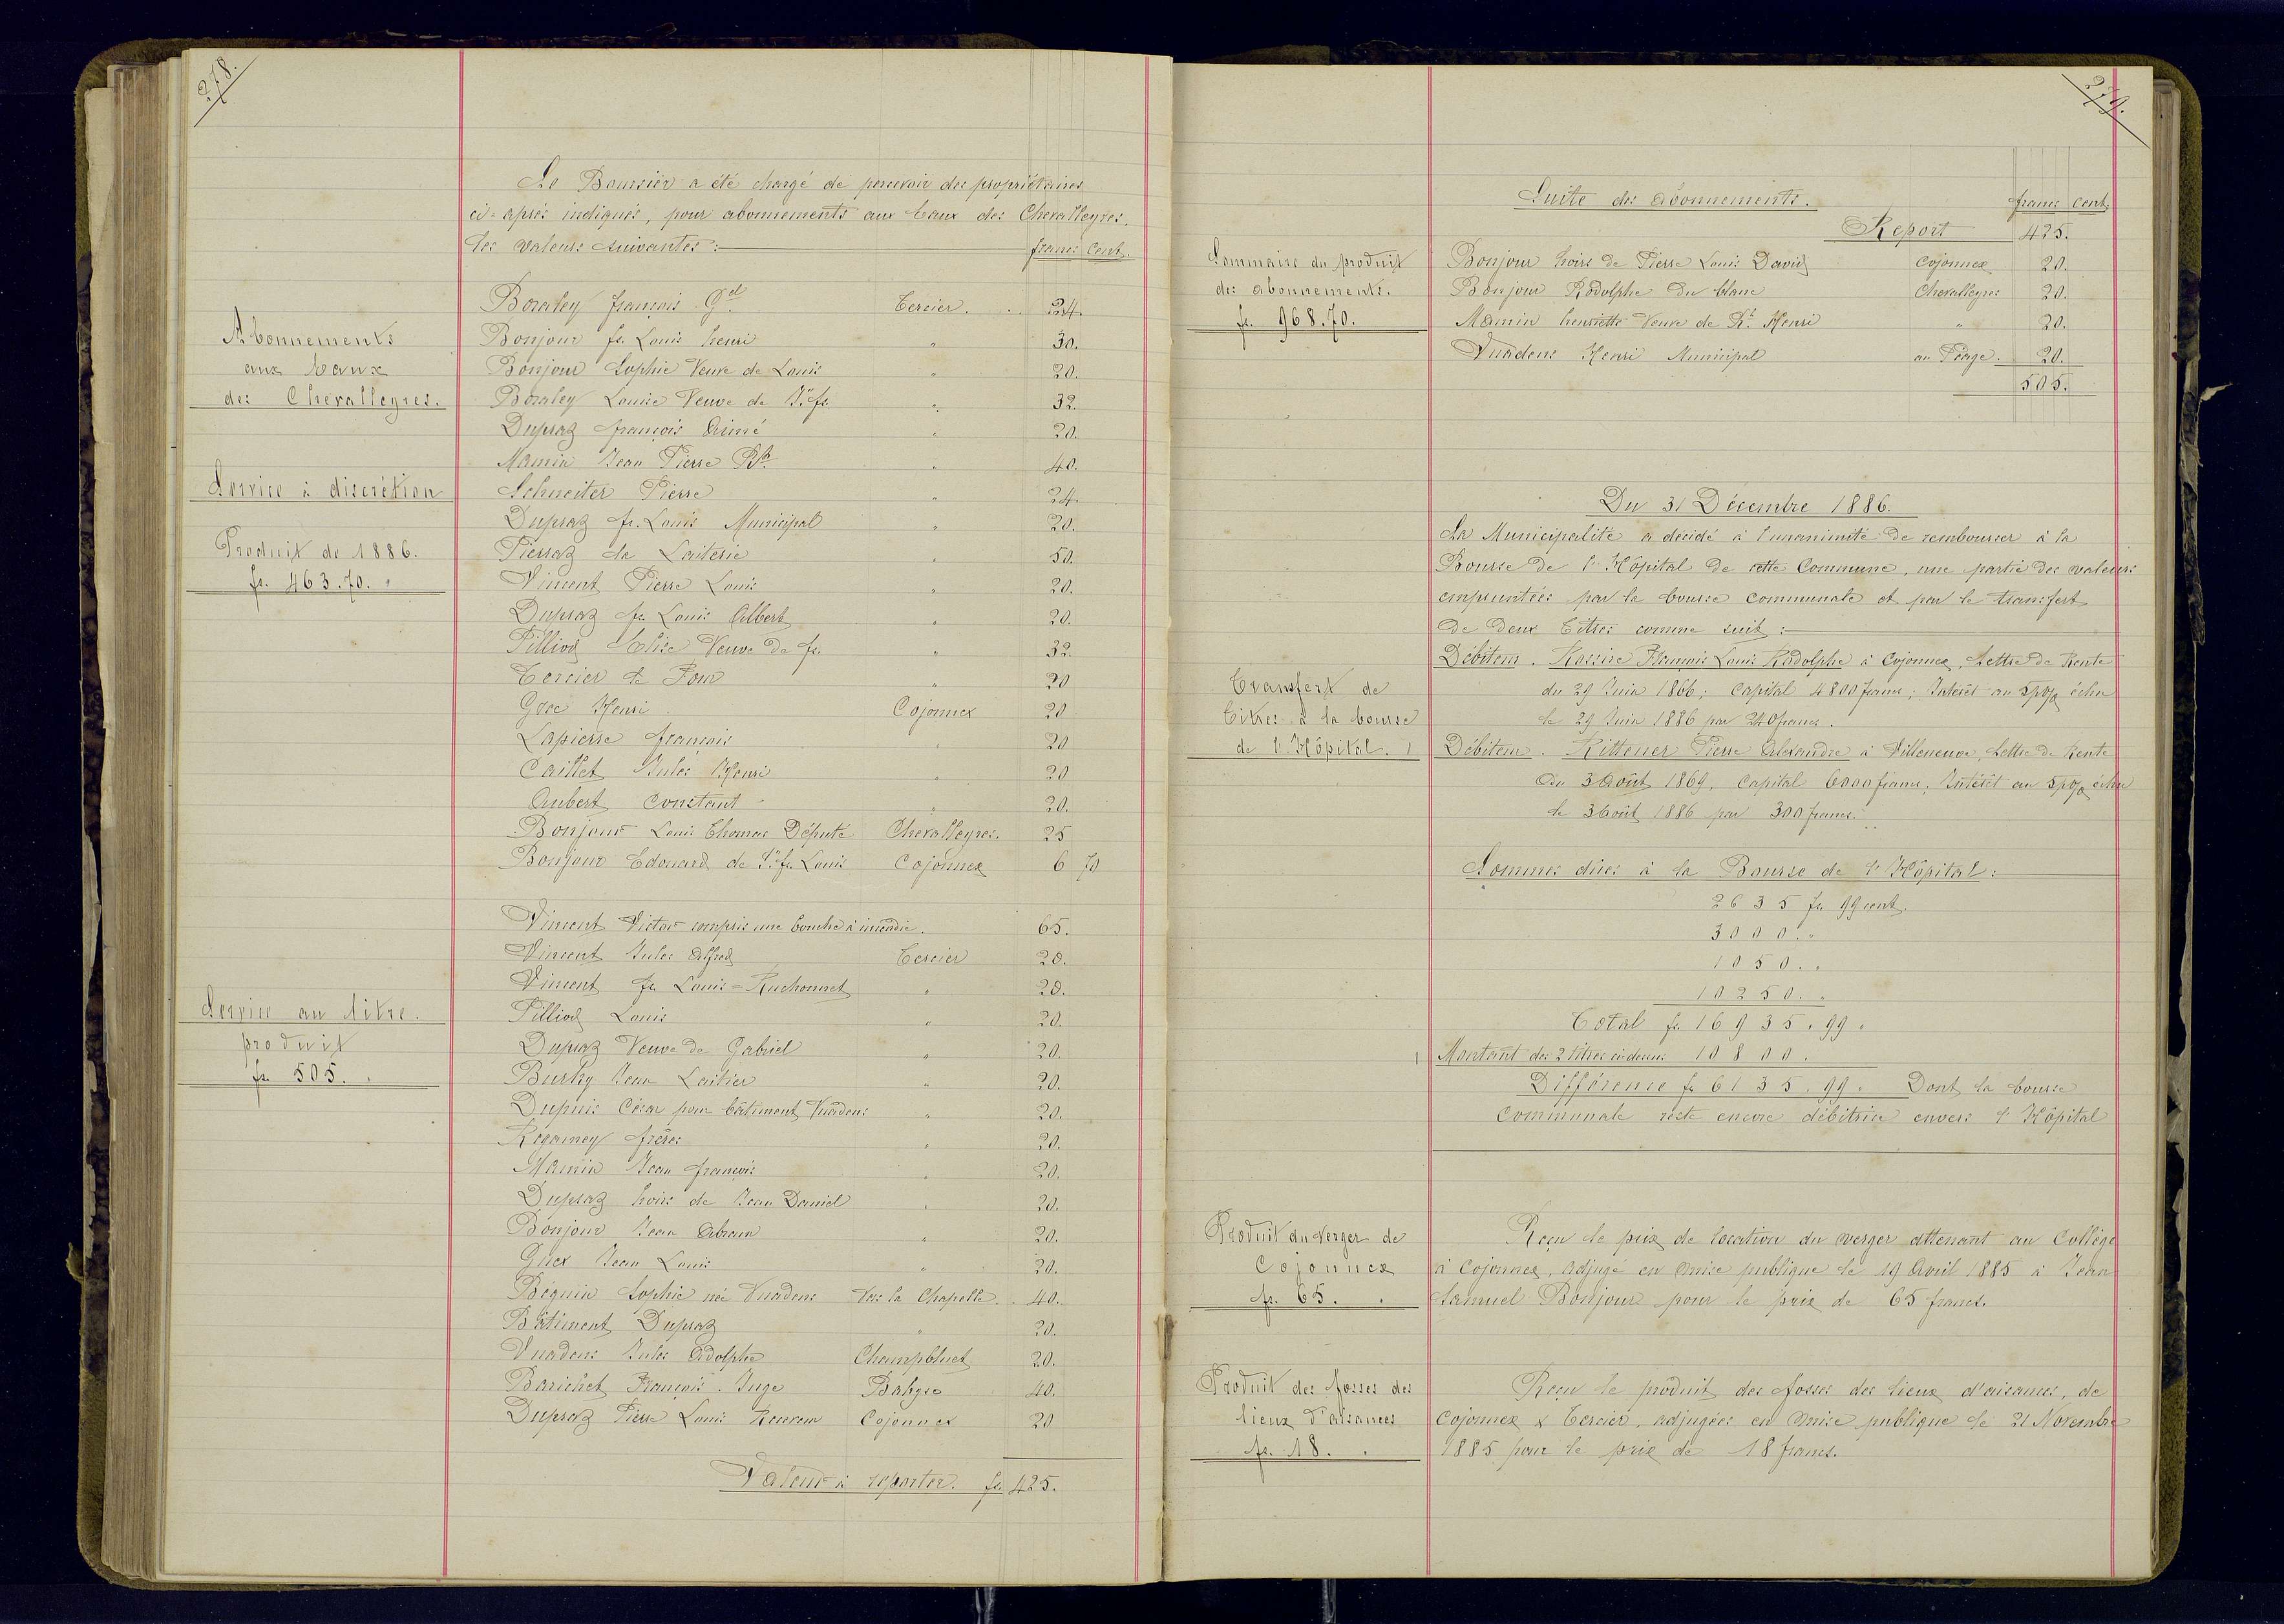 278.
Le Boursier a été chargé de percevoir des propriétaires
ci-après indiqués, pour abonnements aux Eaux des Chevalleyres.
les valeurs suivantes :
francs Cent.
Abonnements
aux Eaux
des Chevalleyres.
Service à discrétion
Produit de 1886.
fr. 463.70. "
Boraley françois Gel Tercier. 24.
Bonjour fs. Louis henri " 30.
Bonjour Sophie Veuve de Louis " 20.
Boraley Louise Veuve de Jn fs. " 32.
Dupraz françois Aimé " 20.
Mamin Jean Pierre Rh. " 40.
Schneiter Pierre " 24.
Dupraz fs. Louis Municipal " 20.
Pierraz de Laiterie " 50.
Vincent Pierre Louis " 20.
Dupraz fs. Louis Albert " 20.
Pilliod Elise Veuve de fs. " 32.
Tercier le Four " 20
Grec Henri Cojonnex 20
Lapierre françois " 20
Caillet Jules Henri " 20
Aubert Constant " 20.
Bonjour Louis Thomas Député Chevalleyres. 25
Bonjour Edouard de Jn fs. Louis Cojonnex 6 70
Service au litre.
produit
fr. 505. "
Vincent Victor compris une bouche à incendie. 65.
Vincent Jules Alfred Tercier 20.
Vincent fs. Louis = Ruchonnet " 20.
Pilliod Louis " 20.
Dupraz Veuve de Gabriel " 20.
Bursky Jean Laitier " 20.
Dupuis César pour bâtiment Vuadens " 20.
Regamey frères " 20.
Mamin Jean françois " 20.
Dupraz hoirs de Jean Daniel " 20.
Bonjour Jean Abram " 20.
Guex Jean Louis " 20.
Béguin Sophie née Vuadens Vers la Chapelle. 40.
Bâtiment Dupraz " 20.
Vuadens Jules Adolphe Champbluet 20.
Barichet François. Juge Bahyse 40.
Dupraz Pierre Louis Cojonnex 20
Valeur à reporter. fr. 425.
279.
Suite des Abonnements.
francs Cent.
Report 425.
Sommaire du produit
des abonnements.
fr. 968.70.
Bonjour hoirs de Pierre Louis David Cojonnex 20.
Bonjour Rodolphe du blanc Chevalleyres 20.
Mamin henriette Veuve de Rt. Henri " 20.
Vuadens Henri Municipal au Péage. 20.
505.
Du 31 Décembre 1886.
La Municipalité a décidé à l'unanimité de rembourser à la
Bourse de l'Hôpital de cette Commune, une partie des valeurs
empruntées par la bourse communale et par le transfert
de deux Titres comme suit :
Transfert de
Titres à la bourse
de l'Hôpital.
Débiteur. Rossire François Louis Rodolphe à Cojonnex, Lettre de Rente
du 29 Juin 1866; Capital 4800 francs; Intérêt au 5 p% échu
le 29 Juin 1886 par 240 francs.
Débiteur. Rittener Pierre Alexandre à Villeneuve, Lettre de Rente
du 3 Août 1869, Capital 6000 francs, Intérêt au 5 p% échu
le 3 Août 1886 par 300 francs.
Sommes dûes à la Bourse de l'Hôpital :
2635 fr. 99 cent.
3000. "
1050. "
10250. "
Total fr. 16935.99.
Montant des 2 titres ci-dessus 10800.
Différence fr. 6135.99. Dont la bourse
Communale reste encore débitrice envers l'Hôpital
Produit du Verger de
Cojonnex
fr. 65. "
Reçu le prix de location du verger attenant au Collège
à Cojonnex, adjugé en mise publique le 19 Avril 1885 à Jean
Samuel Bonjour pour le prix de 65 francs.
Produit des fosses des
lieux d'aisances
fr. 18. "
Reçu le produit des fosses des lieux d'aisances, de
Cojonnex & Tercier, adjugées en mise publique le 21 Novembre
1885 pour le prix de 18 francs.